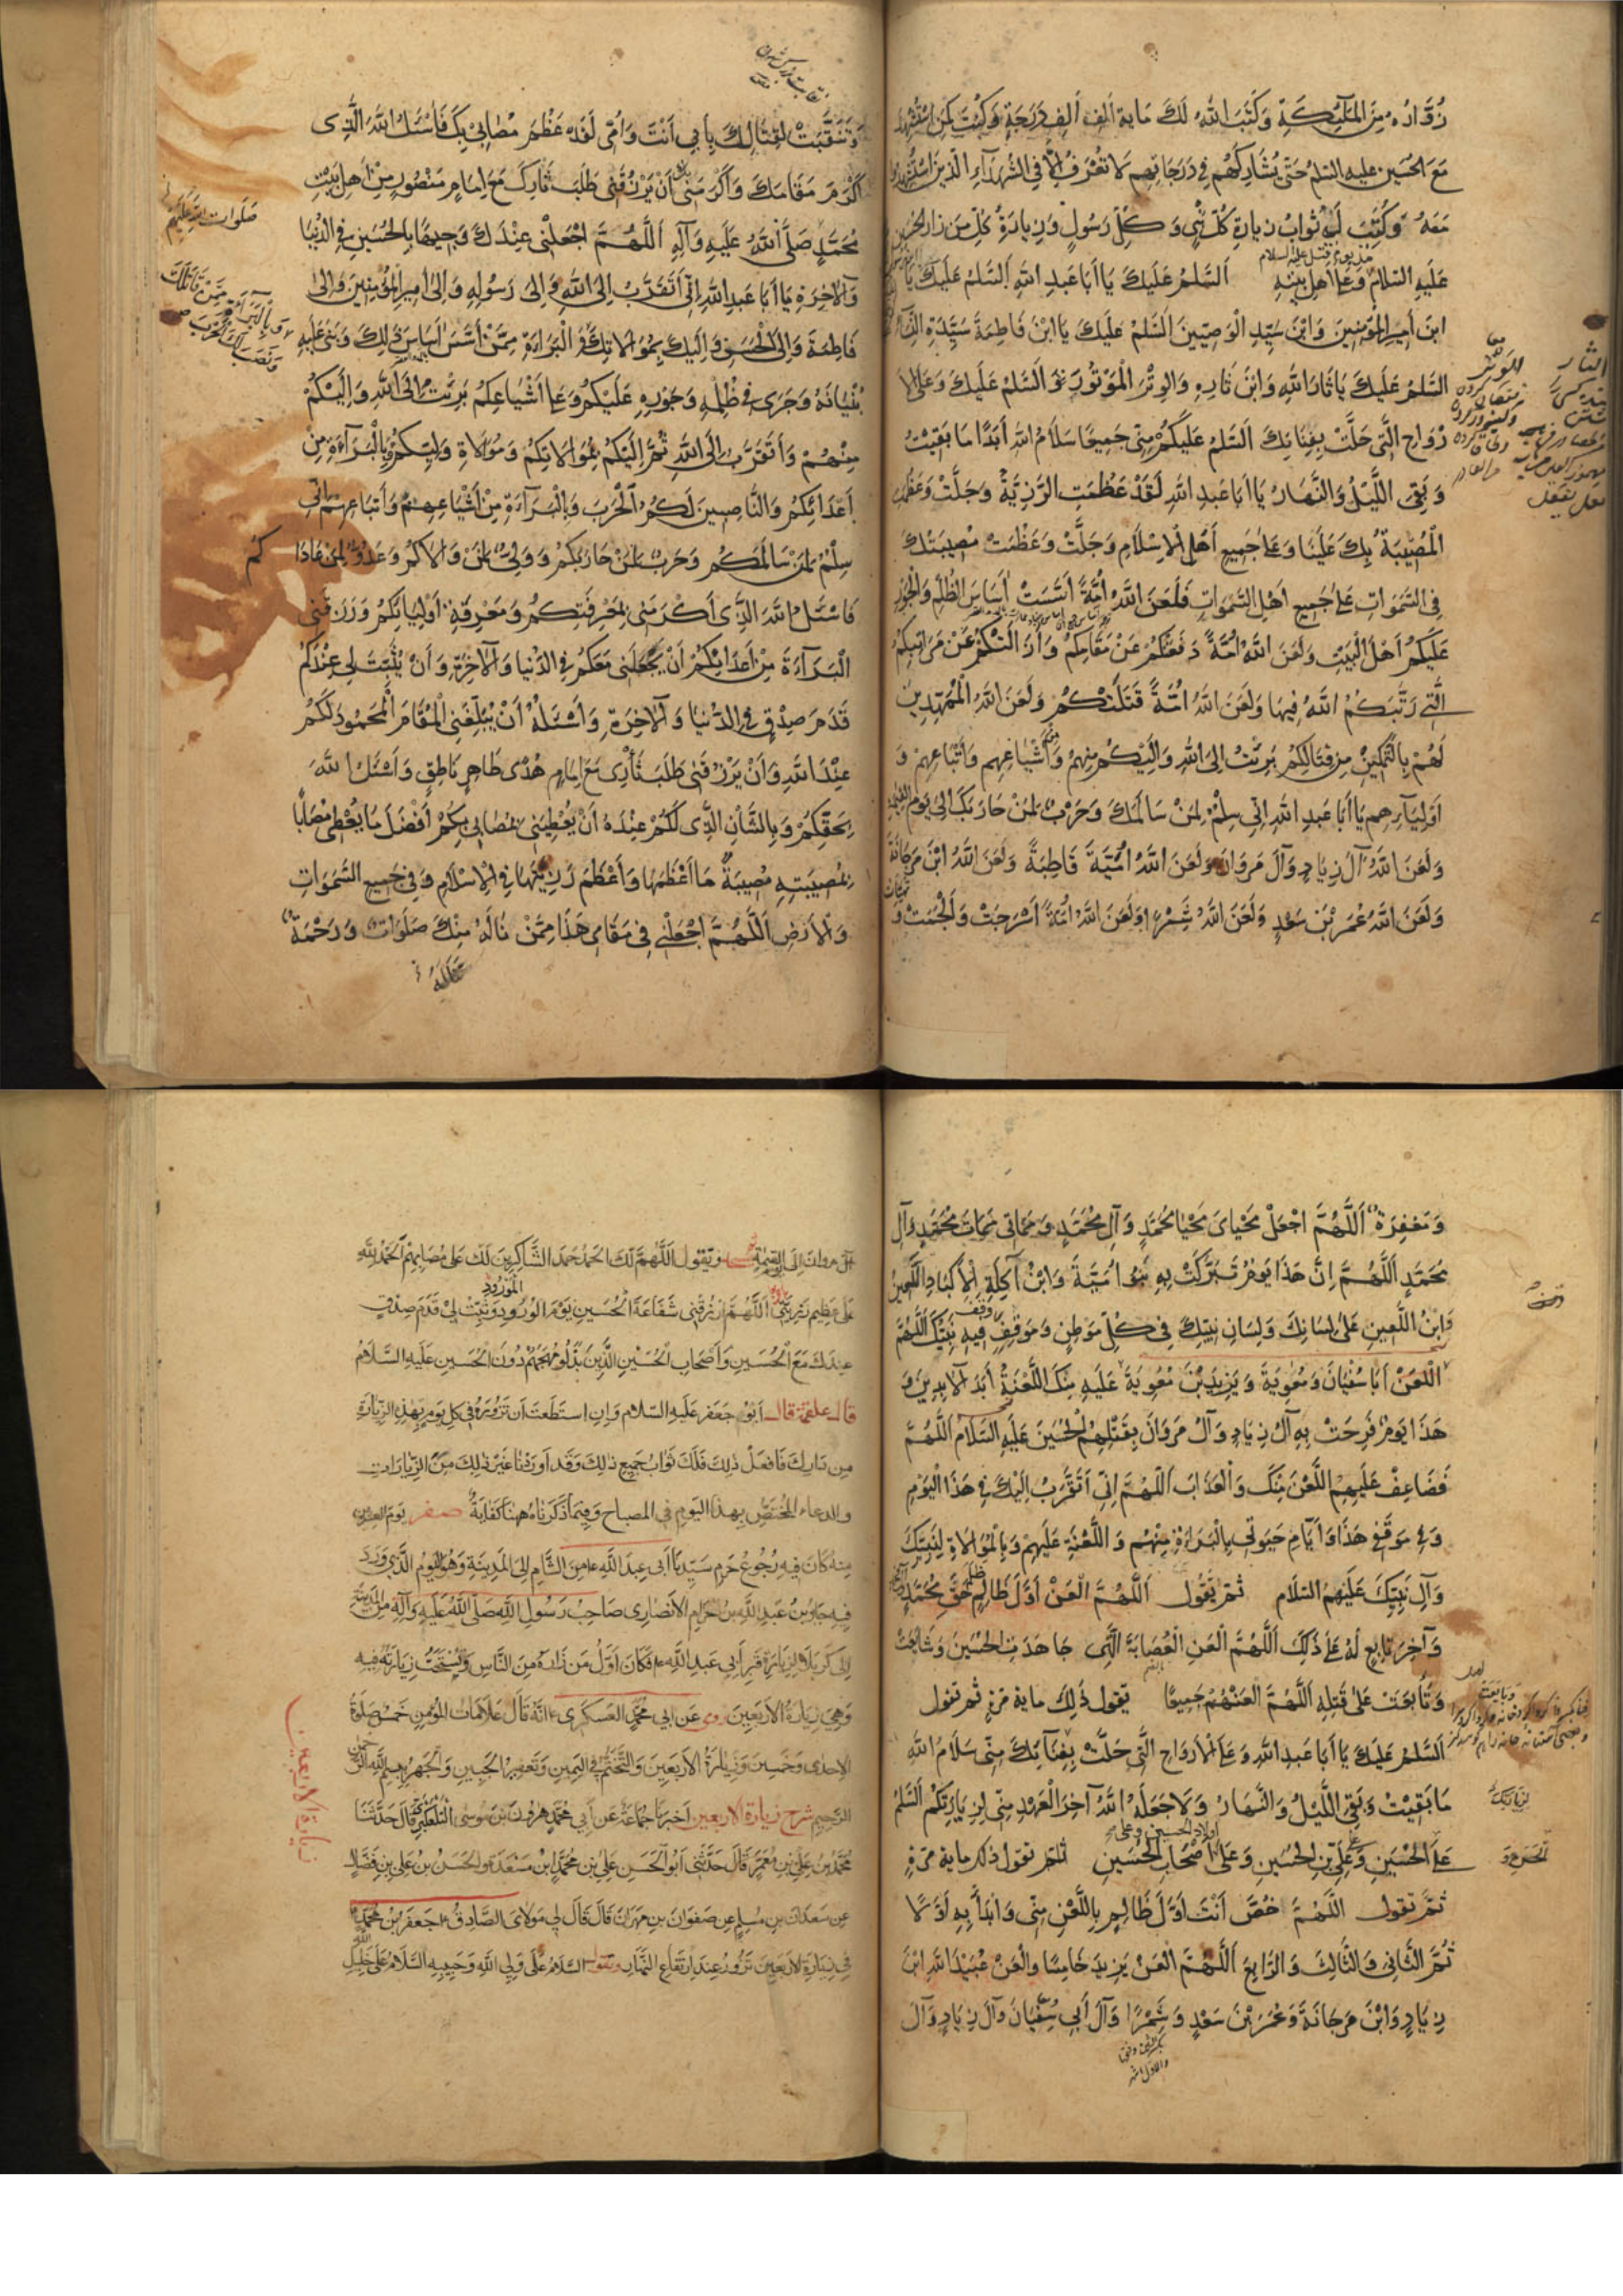 زُوَّارُهُ مِنَ المَلٰٓئِكَةِ وَكَتَبَ اللهُ لَكَ مَایة اَلفِ اَلفِ دَرَجَةٍ وَكُنْتَ كَمَنِ اسْتُشْهِدَ
مَعَ الحُسَینِ علیه السلم حَتّی یُشَارِكَهُم فی دَرَجَاتِهِم لَا تُعْرَفُ اِلَّا فِی الشُّهَدَآءِ الَّذینَ اسْتُشْهِدُوا
مَعَهُ وَكُتِبَ لَكَ ثَوابُ زِیارَةِ كُلِّ نَبِیٍّ وَ كُلِّ رَسُولٍ وَزِیارَةُ كُلِّ مَن زَارَ الحُسَین
مُنذُ یوم قُتِلَ علیه السلام
عَلَیهِ السَّلَامُ وَعَلٰی اَهلِ بَیتِهِ اَلسَّلمُ عَلَیكَ یَا اَبَا عَبدِ اللهِ اَلسَّلمُ عَلَیكَ یَا
ابنَ اَمیرِ المُؤمِنینَ وَابْنَ سَیِّدِ الوَصِیّینَ اَلسَّلمُ عَلَیكَ یَا ابْنَ فَاطِمَةَ سَیِّدَةِ النِّسَآءِ
السَّلمُ عَلَیكَ یَا ثَارَ اللهِ وَابنَ ثَارِهِ وَالوِتْرَ المَوْتُورَ اَلسَّلمُ عَلَیكَ وَعَلَی الاَ
رْوَاحِ الَّتی حَلَّتْ بِفِنَائِكَ اَلسَّلمُ عَلَیكُمْ مِنّی جَمیعًا سَلَامُ اللهِ اَبَدًا مَا بَقیتُ
وَ بَقِیَ اللَّیْلُ وَالنَّهَارُ یَا اَبَا عَبدِ اللهِ لَقَدْ عَظُمَتِ الرَّزِیَّةُ وَجَلَّتْ وَعَظُمَتِ
الْمُصیبَةُ بِكَ عَلَیْنَا وَعَلٰی جَمیعِ أَهْلِ الاِسْلَامِ وَجَلَّتْ وَعَظُمَتْ مُصیبَتُكَ
فِی السَّمٰوَاتِ عَلٰی جَمیعِ اَهْلِ السَّمٰوَاتِ فَلَعَنَ اللهُ اُمَّةً اَسَّسَتْ اَسَاسَ الظُّلْمِ وَالْجَوْرِ
عَلَیكُمْ اَهْلَ الْبَیْتِ وَلَعَنَ اللهُ اُمَّةً دَفَعَتْكُمْ عَنْ مَقَامِكُمْ وَاَزَالَتْكُمْ عَنْ مَرَاتِبِكُمُ
الَّتی رَتَّبَكُمُ اللهُ فیهَا وَلَعَنَ اللهُ اُمَّةً قَتَلَتْكُمْ وَلَعَنَ اللهُ الْمُمَهِّدینَ
لَهُمْ بِالتَّمْكینِ مِنْ قِتَالِكُمْ بَرِئْتُ اِلَی اللهِ وَاِلَیْكُمْ مِنهُمْ وَاَشْیَاعِهِمْ وَاَتْبَاعِهِمْ وَ
اَوْلِیَآءِهِم یَا اَبَا عَبدِ اللهِ اِنّی سِلْمٌ لِمَنْ سَالَمَكَ وَحَرْبٌ لِمَنْ حَارَبَكَ اِلٰی یَومِ القِیٰمَةِ
وَلَعَنَ اللهُ آلَ زِیَادٍ وَآلَ مَرْوَانَ وَلَعَنَ اللهُ اُمَیَّةَ قَاطِبَةً وَلَعَنَ اللهُ ابْنَ مَرْجَانَةَ
وَلَعَنَ اللهُ عُمَرَ بْنَ سَعْدٍ وَلَعَنَ اللهُ شِمْرًا وَلَعَنَ اللهُ اُمَّةً اَسْرَجَتْ وَاَلْجَمَتْ وَ
وَتَنَقَّبَتْ لِقِتَالِكَ بِاَبی اَنْتَ وَاُمّی لَقَدْ عَظُمَ مُصَابی بِكَ فَاَسْئَلُ اللهَ الَّذی
اَكْرَمَ مَقَامَكَ وَاَكْرَمَنی اَنْ یَرْزُقَنی طَلَبَ ثَارِكَ مَعَ اِمَامٍ مَنْصُورٍ مِنْ اَهلِ بَیْتِ
مُحَمَّدٍ صَلَّی اللهُ عَلَیهِ وَآلِهِ اَللّٰهُمَّ اجْعَلْنی عِنْدَكَ وَجیهًا بِالْحُسَیْنِ فِی الدُّنْیَا
صَلَوات اللهِ عَلَیهِم
وَالآخِرَةِ یَا اَبَا عَبدِ اللهِ اِنّی اَتَقَرَّبُ اِلَی اللهِ وَاِلٰی رَسُولِهِ وَاِلٰی اَمیرِ الْمُؤْمِنینَ وَاِلٰی
وَبِالْبَرَآءَةِ مِمَّنْ قَاتَلَكَ
وَنَصَبَ لَكَ الْحَرْبَ
فَاطِمَةَ وَاِلَی الْحَسَنِ وَاِلَیْكَ بِمُوَالَاتِكَ وَالْبَرَاءَةِ مِمَّنْ اَسَّسَ اَسَاسَ ذٰلِكَ وَبَنٰی عَلَیْهِ
بُنْیَانَهُ وَجَرٰی فی ظُلْمِهِ وَجَوْرِهِ عَلَیْكُمْ وَعَلٰی اَشْیَاعِكُمْ بَرِئْتُ اِلَی اللهِ وَاِلَیْكُمْ
مِنْهُمْ وَاَتَقَرَّبُ اِلَی اللهِ ثُمَّ اِلَیْكُمْ بِمُوَالَاتِكُمْ وَمُوَالَاةِ وَلِیِّكُمْ وَبِالْبَرَآءَةِ مِنْ
اَعْدَائِكُمْ وَالنَّاصِبینَ لَكُمُ الْحَرْبَ وَبِالْبَرَآءَةِ مِنْ اَشْیَاعِهِمْ وَاَتْبَاعِهِمْ اِنّی
سِلْمٌ لِمَنْ سَالَمَكُمْ وَحَرْبٌ لِمَنْ حَارَبَكُمْ وَوَلِیٌّ لِمَنْ وَالاكُمْ وَعَدُوٌّ لِمَنْ عَادَا كُمْ
فَاَسْئَلُ اللهَ الَّذی اَكْرَمَنی بِمَعْرِفَتِكُمْ وَمَعْرِفَةِ اَوْلِیَائِكُمْ وَرَزَقَنی
الْبَرَآءَةَ مِنْ اَعْدَائِكُمْ اَنْ یَجْعَلَنی مَعَكُمْ فِی الدُّنْیَا وَالآخِرَةِ وَاَنْ یُثَبِّتَ لی عِنْدَكُمْ
قَدَمَ صِدْقٍ فِی الدُّنْیَا وَالآخِرَةِ وَاَسْئَلُهُ اَنْ یُبَلِّغَنِی الْمَقَامَ الْمَحْمُودَ لَكُمْ
عِنْدَ اللهِ وَاَنْ یَرْزُقَنی طَلَبَ ثَاْری مَعَ اِمَامٍ هُدًی ظَاهِرٍ نَاطِقٍ وَاَسْئَلُ اللهَ
بِحَقِّكُمْ وَبِالشَّاْنِ الَّذی لَكُمْ عِنْدَهُ اَنْ یُعْطِیَنی بِمُصَابی بِكُمْ اَفْضَلَ مَا یُعْطٰی مُصَابًا
بِمُصیبَتِهِ مُصیبَةً مَا اَعْظَمَهَا وَاَعْظَمَ رَزِیَّتَهَا فِی الْاِسْلَامِ وَفی جَمیعِ السَّمٰوَاتِ
وَالاَرْضِ اَللّٰهُمَّ اجْعَلْنی فی مَقَامی هَذَا مِمَّنْ تَنَالُهُ مِنْكَ صَلَوَاتٌ وَرَحْمَةٌ
وَمَغْفِرَةٌ اَللّٰهُمَّ اجْعَلْ مَحْیَایَ مَحْیَا مُحَمَّدٍ وَآلِ مُحَمَّدٍ وَمَمَاتی مَمَاتَ مُحَمَّدٍ وَآلِ
مُحَمَّدٍ اَللّٰهُمَّ اِنَّ هَذَا یَوْمٌ تَبَرَّكَتْ بِهِ بَنُو اُمَیَّةَ وَابْنُ آكِلَةِ الْاَكْبَادِ اللَّعینُ
وَابْنُ اللَّعینِ عَلٰی لِسَانِكَ وَلِسَانِ نَبِیِّكَ فی كُلِّ مَوْطِنٍ وَمَوْقِفٍ وَقَفَ فیهِ نَبِیُّكَ اَللّٰهُمَّ
الْعَنْ اَبَا سُفْیَانَ وَمُعٰوِیَةَ وَیَزیدَ بْنَ مُعٰوِیَةَ عَلَیْهِ مِنْكَ اللَّعْنَةُ اَبَدَ الآبِدینَ وَ
هَذَا یَوْمٌ فَرِحَتْ بِهِ آلُ زِیَادٍ وَآلُ مَرْوَانَ بِقَتْلِهِمُ الْحُسَیْنَ عَلَیْهِ السَّلَامُ اَللّٰهُمَّ
فَضَاعِفْ عَلَیْهِمُ اللَّعْنَ مِنْكَ وَالْعَذَابَ اَللّٰهُمَّ اِنّی اَتَقَرَّبُ اِلَیْكَ فی هَذَا الْیَوْمِ
وَفی مَوْقِفی هَذَا وَاَیَّامِ حَیٰوتی بِالْبَرَاءَةِ مِنْهُمْ وَاللَّعْنَةِ عَلَیْهِمْ وَبِالْمُوَالَاةِ لِنَبِیِّكَ
وَآلِ نَبِیِّكَ عَلَیْهِمُ السَّلَام ثُمَّ یَقُول اَللّٰهُمَّ الْعَنْ اَوَّلَ ظَالِمٍ ظَلَمَ حَقَّ مُحَمَّدٍ
وَآخِرَ تَابِعٍ لَهُ عَلٰی ذٰلِكَ اَللّٰهُمَّ الْعَنِ الْعِصَابَةَ الَّتی جَاهَدَتِ الْحُسَیْنَ وَشَایَعَتْ
وَتَابَعَتْ عَلٰی قَتْلِهِ اَللّٰهُمَّ الْعَنْهُمْ جَمیعًا یَقُول ذٰلِكَ مایة مَرَّةٍ ثم تقول
اَلسَّلمُ عَلَیكَ یَا اَبَا عَبدِ اللهِ وَعَلَی الْاَرْوَاحِ الَّتی حَلَّتْ بِفِنَآئِكَ مِنّی سَلَامُ اللهِ
مَا بَقِیتُ وَبَقِیَ اللَّیْلُ وَالنَّهَارُ وَلَا جَعَلَهُ اللهُ آخِرَ الْعَهْدِ مِنّی لِزِیَارَتِكُمْ اَلسَّلمُ
لِزِیَارَتِكَ
اولاد الحسین وعلی
عَلَی الْحُسَیْنِ وَعَلِیِّ بْنِ الْحُسَیْنِ وَعَلٰی اَصْحَابِ الْحُسَیْنِ ثُمَّ تقول ذلك مایة مرّةٍ
ثُمَّ تقول اَللّٰهُمَّ خُصَّ اَنْتَ اَوَّلَ ظَالِمٍ بِاللَّعْنِ مِنّی وَابْدَأْ بِهِ اَوَّلًا
ثُمَّ الثَّانِی وَالثَّالِثَ وَالرَّابِعَ اَللّٰهُمَّ الْعَنْ یَزیدَ خَامِسًا وَالْعَنْ عُبَیْدَ اللهِ ابْنَ
زِیَادٍ وَابْنَ مَرْجَانَةَ وَعُمَرَ بْنَ سَعْدٍ وَشِمْرًا وَآلَ اَبی سُفْیَانَ وَآلَ زِیَادٍ وَآلَ
آلَ مروان اِلٰی یَوْمِ القِیٰمَةِ وتقول اَللّٰهُمَّ لَكَ الحَمْدُ حَمْدَ الشَّاكِرینَ لَكَ عَلٰی مُصَابِهِمْ اَلْحَمْدُ لِلّٰهِ
عَلٰی عَظیمِ رَزِیَّتی اَللّٰهُمَّ ارْزُقْنی شَفَاعَةَ الْحُسَیْنِ یَوْمَ الْوُرُودِ وَثَبِّتْ لی قَدَمَ صِدْقٍ
عِنْدَكَ مَعَ الْحُسَیْنِ وَاَصْحَابِ الْحُسَیْنِ الَّذینَ بَذَلُوا مُهَجَهُمْ دُونَ الْحُسَیْنِ عَلَیهِ السَّلَامُ
قال علقمة قال اَبُو جَعْفَرٍ عَلَیهِ السّلام وَاِنِ استَطَعتَ اَن تَزُورَهُ فی كلِّ یَومٍ بِهٰذِهِ الزِّیَارَةِ
مِن دَارِكَ فَافعَلْ ذٰلِكَ فَلَكَ ثَوَابُ جَمیعِ ذٰلِكَ وَقَد اَورَدْنَا غَیْرَ ذٰلِكَ مِنَ الزِّیَارَات
والدعاء المُختَصِّ بهذا الیَومِ فی المصباح وَفیمَا ذَكَرنَاهُ هٰهُنَا كِفَایَةٌ صفر یَومَ العِشرین
مِنهُ كَانَ فیهِ رُجُوعُ حَرَمِ سَیِّدِنَا اَبی عَبدِ اللهِ مِنَ الشَّامِ اِلَی المَدِینَةِ وَهُوَ الیَومُ الَّذی وَرَدَ
فیهِ جَابِرُ بْنُ عَبدِ اللهِ بنِ حَرَامٍ الاَنصَاری صَاحِبُ رَسُولِ اللهِ صَلَّی اللهُ عَلَیهِ وَآلِهِ مِنَ المَدِینَةِ
اِلٰی كَربَلَا لِزِیَارَةِ قَبرِ اَبی عَبدِ اللهِ فَكَانَ اَوَّلَ مَن زَارَهُ مِنَ النَّاسِ وَیُستَحَبُّ زِیَارَتُهُ فیهِ
وَهِیَ زِیَارَةُ الاَربَعینَ روی عَن اَبی مُحَمَّدٍ العَسكَری اَنَّهُ قَالَ عَلَامَاتُ المُؤمِنِ خَمسٌ صَلٰوةُ
الاِحدٰی وَخَمسینَ وَزِیَارَةُ الاَربَعینَ وَالتَّخَتُّمُ فِی الیَمینِ وَتَعفیرُ الجَبینِ وَالجَهرُ بِبِسمِ اللهِ الرَّحمٰنِ
الرَّحیمِ شرح زیارة الاربعین اَخبَرَنَا جَمَاعَةٌ عَن اَبی مُحَمَّدٍ هٰرُونَ بْنِ مُوسَی التَّلعُكبَری قَالَ حَدَّثَنَا
زیارة الاربعین
مُحَمَّدُ بنُ عَلِیِّ بنِ مَعمَرٍ قَالَ حَدَّثَنی اَبُو الحَسَنِ عَلِیُّ بنُ مُحَمَّدِ ابْنِ مَسْعَدَةَ وَالحَسَنُ بنُ عَلِیِّ بنِ فَضَّالٍ
عَن سَعدَانَ بنِ مُسلِمٍ عَن صَفوَانَ بنِ مِهرَانَ قَالَ قَالَ لی مَولَایَ الصَّادِقُ جَعفَرُ بنُ مُحَمَّدٍ
فی زِیَارَةِ الاَربَعینَ تَزُورُ عِندَ ارتِفَاعِ النَّهَارِ وتقول السَّلَامُ عَلٰی وَلِیِّ اللهِ وَحَبیبِهِ السَّلَامُ عَلٰی خَلیلِ